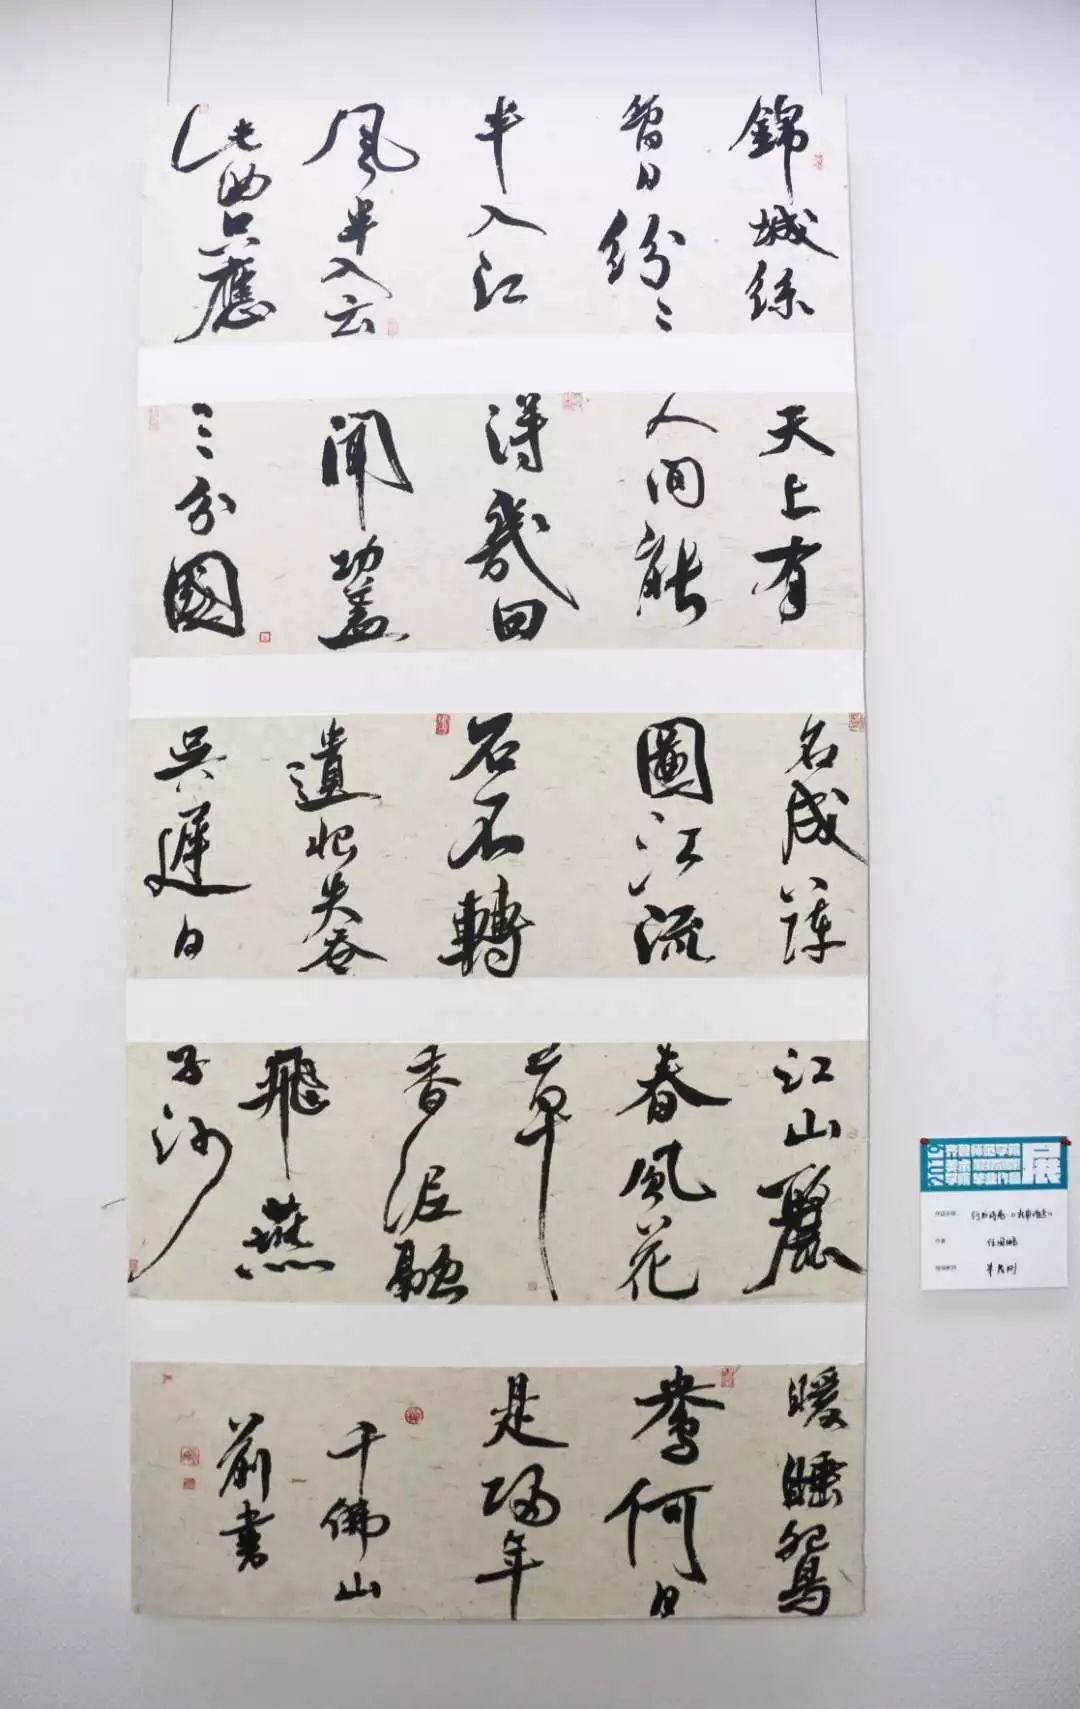 錦城絲
管日紛〻
半入江
風半入云
此曲只應
天上有
人间能
得幾回
聞功盖
三分國
名成八陣
圖江流
石不轉
遺恨失吞
吳遲日
江山麗
春風花
草
香泥融
飛燕
子沙
暖睡鴛
鴦何日
是歸年
千佛山
前書
齐鲁师范学院
毕业作品
展